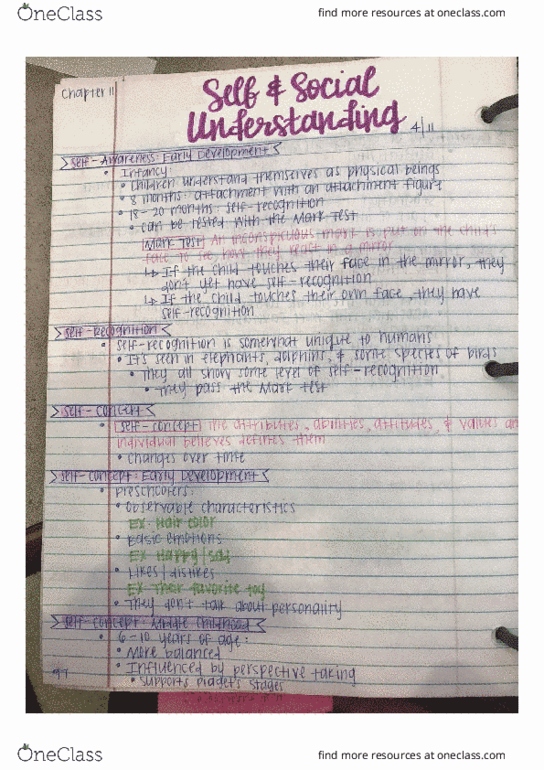 OneClass
find more resources at oneclass.com
Chapter 11
Self & Social
Understanding
4/11
Self-Awareness: Early Development
• Infancy:
• Children understand themselves as physical beings
• 8 months: attachment with an attachment figure
• 18-20 months: self-recognition
• can be tested with the Mark Test
[Mark Test] An inconspicuous mark is put on the child's
face to see how they react in a mirror
↳ If the child touches their face in the mirror, they
don't yet have self-recognition
↳ If the child touches their own face, they have
self-recognition
Self-Recognition
• Self-recognition is somewhat unique to humans
• It's seen in elephants, dolphins, & some species of birds
• They all show some level of self-recognition
• They pass the Mark Test
Self-Concept
• [Self-concept] The attributes, abilities, attitudes, & values an
individual believes defines them
• Changes over time
Self-Concept: Early Development
• Preschoolers:
• Observable characteristics
EX: Hair color
• Basic emotions
EX: Happy/sad
• Likes/dislikes
EX: Their favorite toy
• They don't talk about personality
Self-Concept: Middle Childhood
• 6-10 years of age:
• More balanced
• Influenced by perspective taking
• Supports Piaget's stages
OneClass
find more resources at oneclass.com